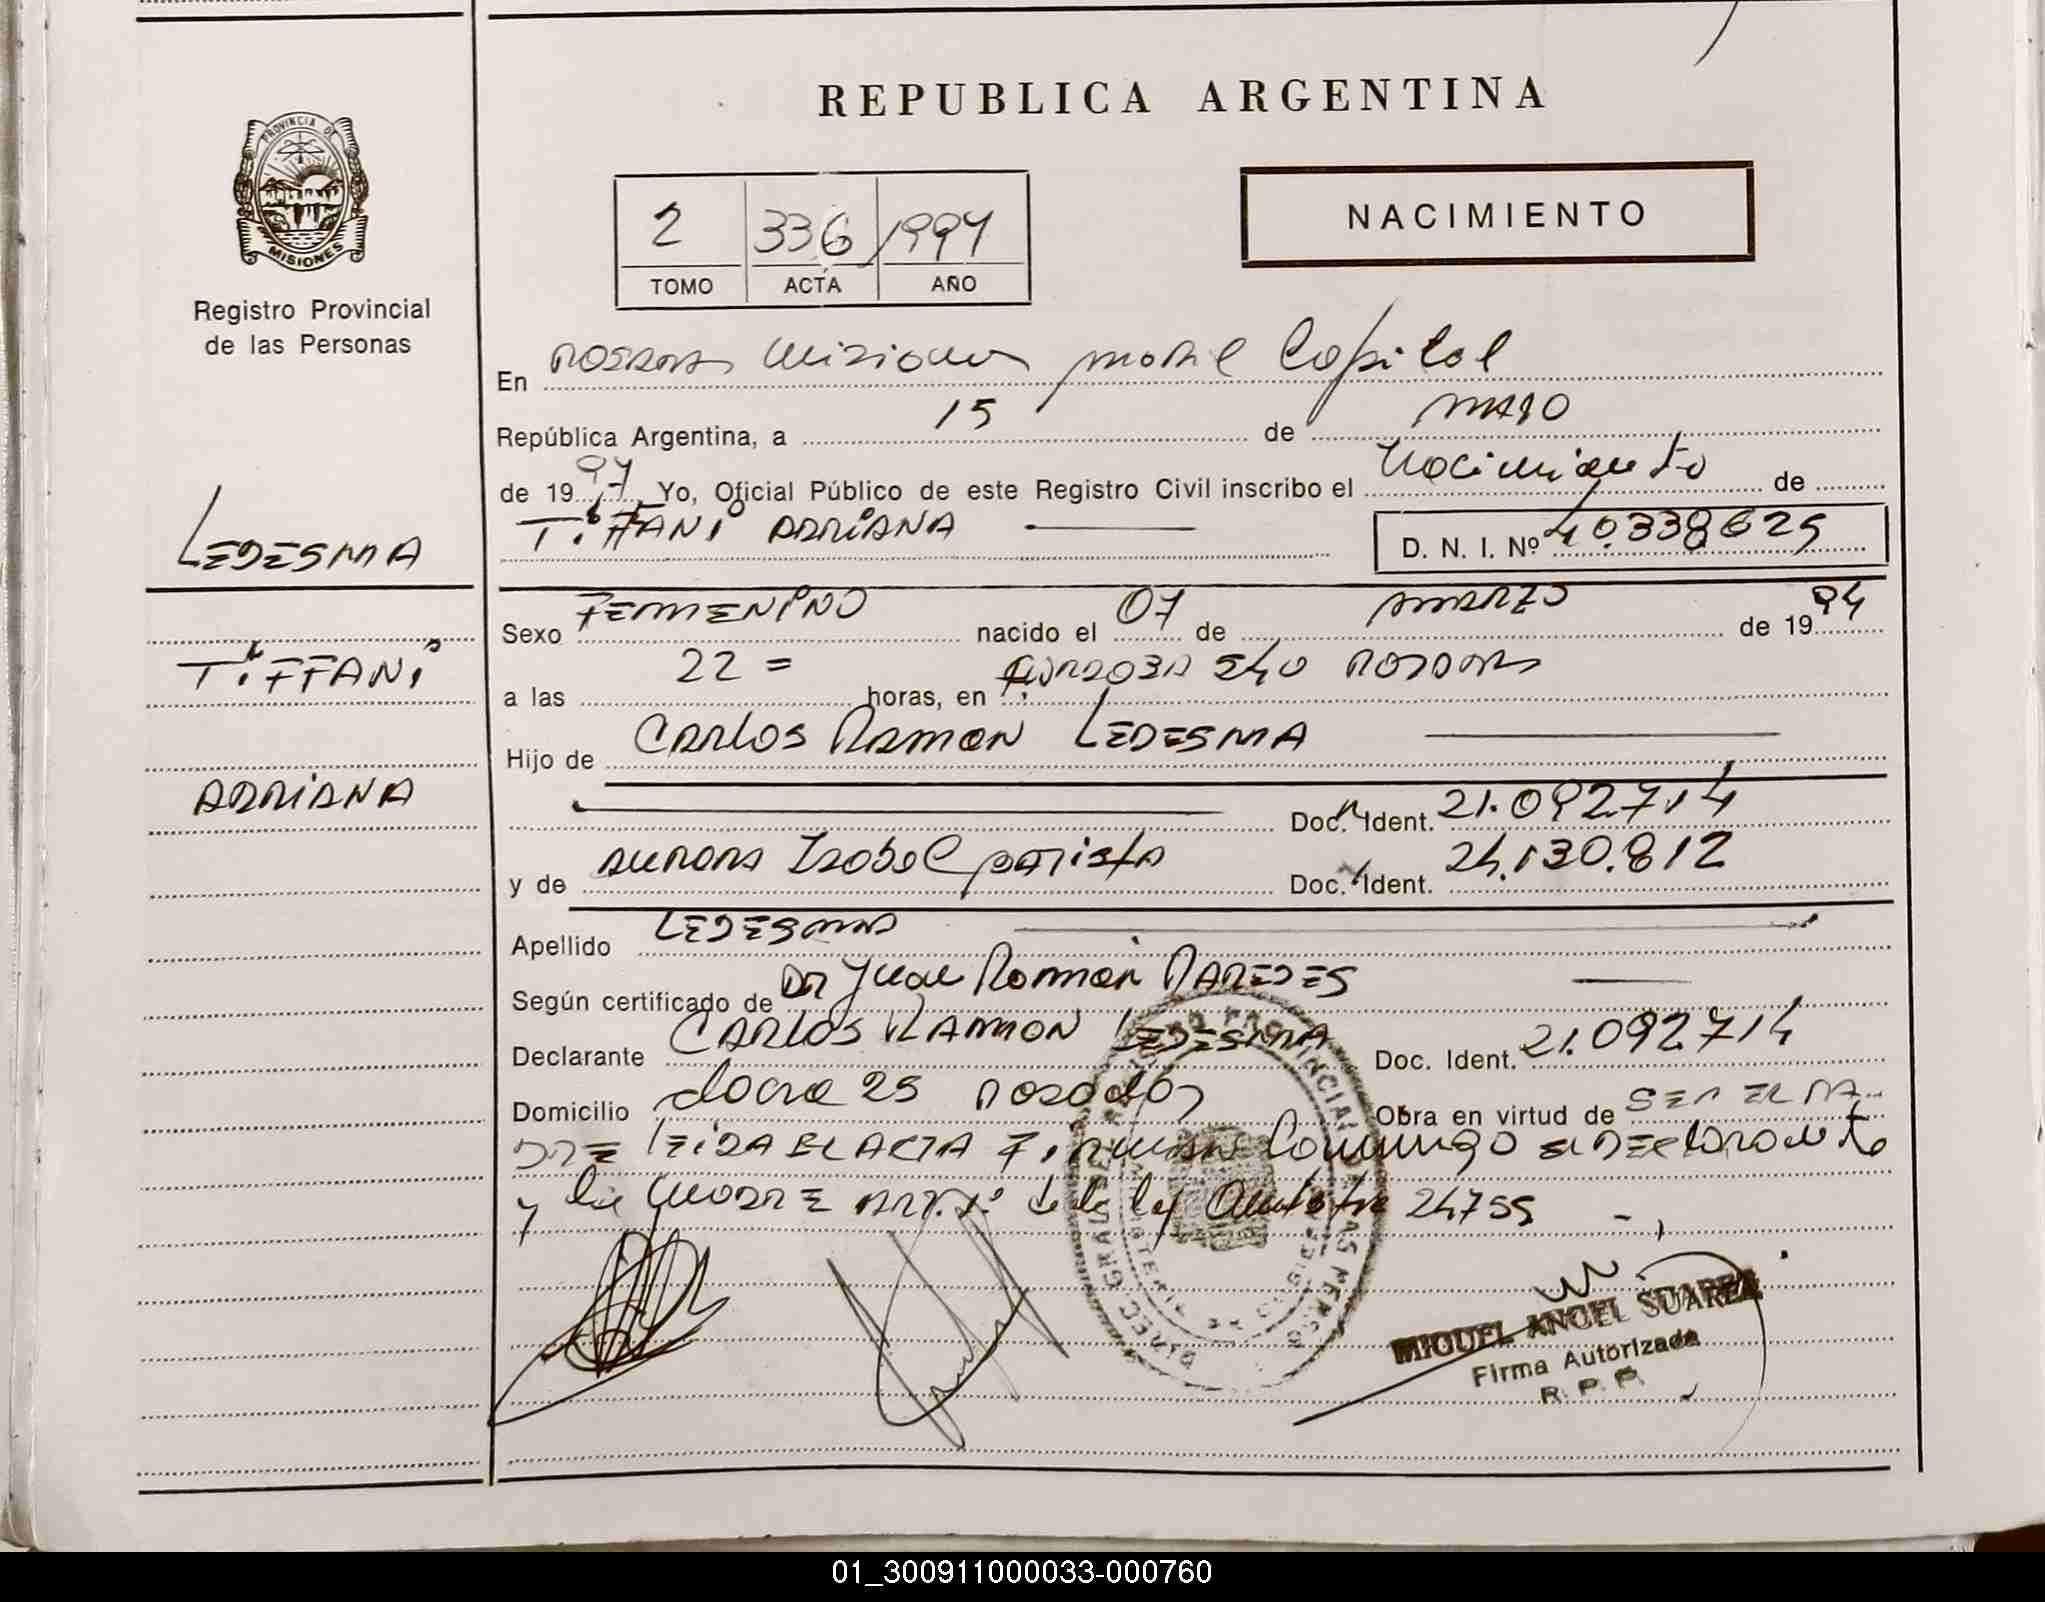 REPUBLICA ARGENTINA
PROVINCIA DE
MISIONES
Registro Provincial
de las Personas
NACIMIENTO
2 336 1997
TOMO ACTA AÑO
En Posadas Misiones movil Capital
República Argentina, a 15 de MAYO
de 1997. Yo, Oficial Público de este Registro Civil inscribo el Nacimiento de
TiFFANi ADRIANA D. N. I. Nº 40.338625
LEDESMA
TiFFANi
ADRIANA
Sexo FEMENINO nacido el 07 de MARZO de 1994
a las 22 = horas, en POSADAS
Hijo de CARLOS RAMON LEDESMA
Doc. Ident. 21.092.714
y de AURORA Isabel Doc. Ident. 24.130.812
Apellido LEDESMA
Según certificado de DR Juan Roman PAREDES
Declarante CARLOS RAMON LEDESMA Doc. Ident. 21.092.714
Domicilio 25 Posadas Obra en virtud de SER EL PA-
DRE LEIDA EL ACTA FIRMAN Conmigo el Declarante
y la MADRE de la ley 24755
MIGUEL ANGEL SUAREZ
Firma Autorizada
R. P. P.
01_300911000033-000760